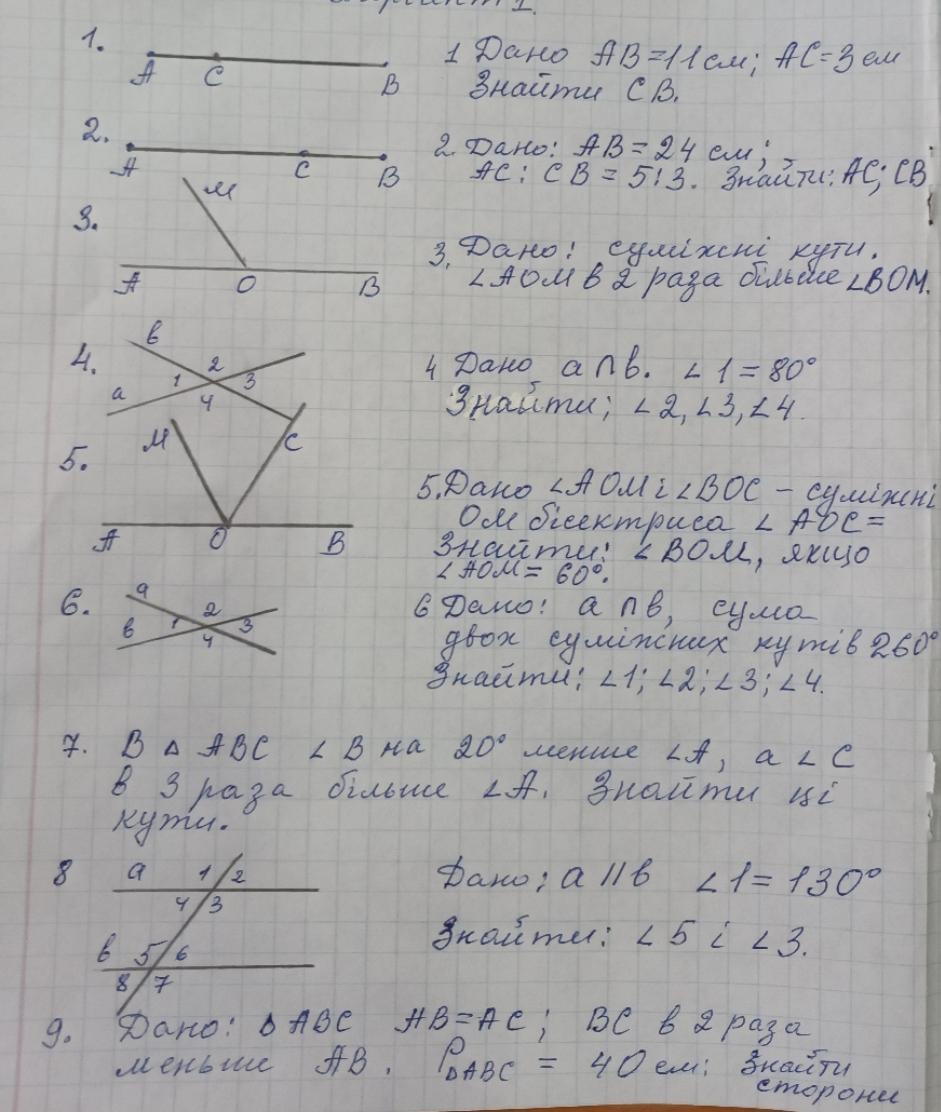 Варіант 1.
1.
A C B
1 Дано AB=11 см; AC=3 см
Знайти CB.
2.
A C B
2. Дано: AB = 24 см;
AC : CB = 5:3. Знайти: AC; CB
3.
M
A O B
3. Дано: суміжні кути.
∠AOM в 2 раза більше ∠BOM.
4.
в
a 1 2 3
4
4 Дано a∩в. ∠1 = 80°
Знайти; ∠2, ∠3, ∠4.
5.
M C
A O B
5. Дано ∠AOM і ∠BOC – суміжні
OM бісектриса ∠AOC =
Знайти: ∠BOM, якщо
∠AOM = 60°.
6.
a
в 1 2 3
4
6 Дано: a∩в, сума
двох суміжних кутів 260°
Знайти; ∠1; ∠2; ∠3; ∠4.
7. В △ ABC ∠B на 20° менше ∠A, а ∠C
в 3 раза більше ∠A. Знайти ці
кути.
8
a 1 2
4 3
в 5 6
8 7
Дано; a || в ∠1 = 130°
Знайти: ∠5 і ∠3.
9. Дано: △ABC AB=AC; BC в 2 раза
меньше AB. P△ABC = 40 см; Знайти
сторони